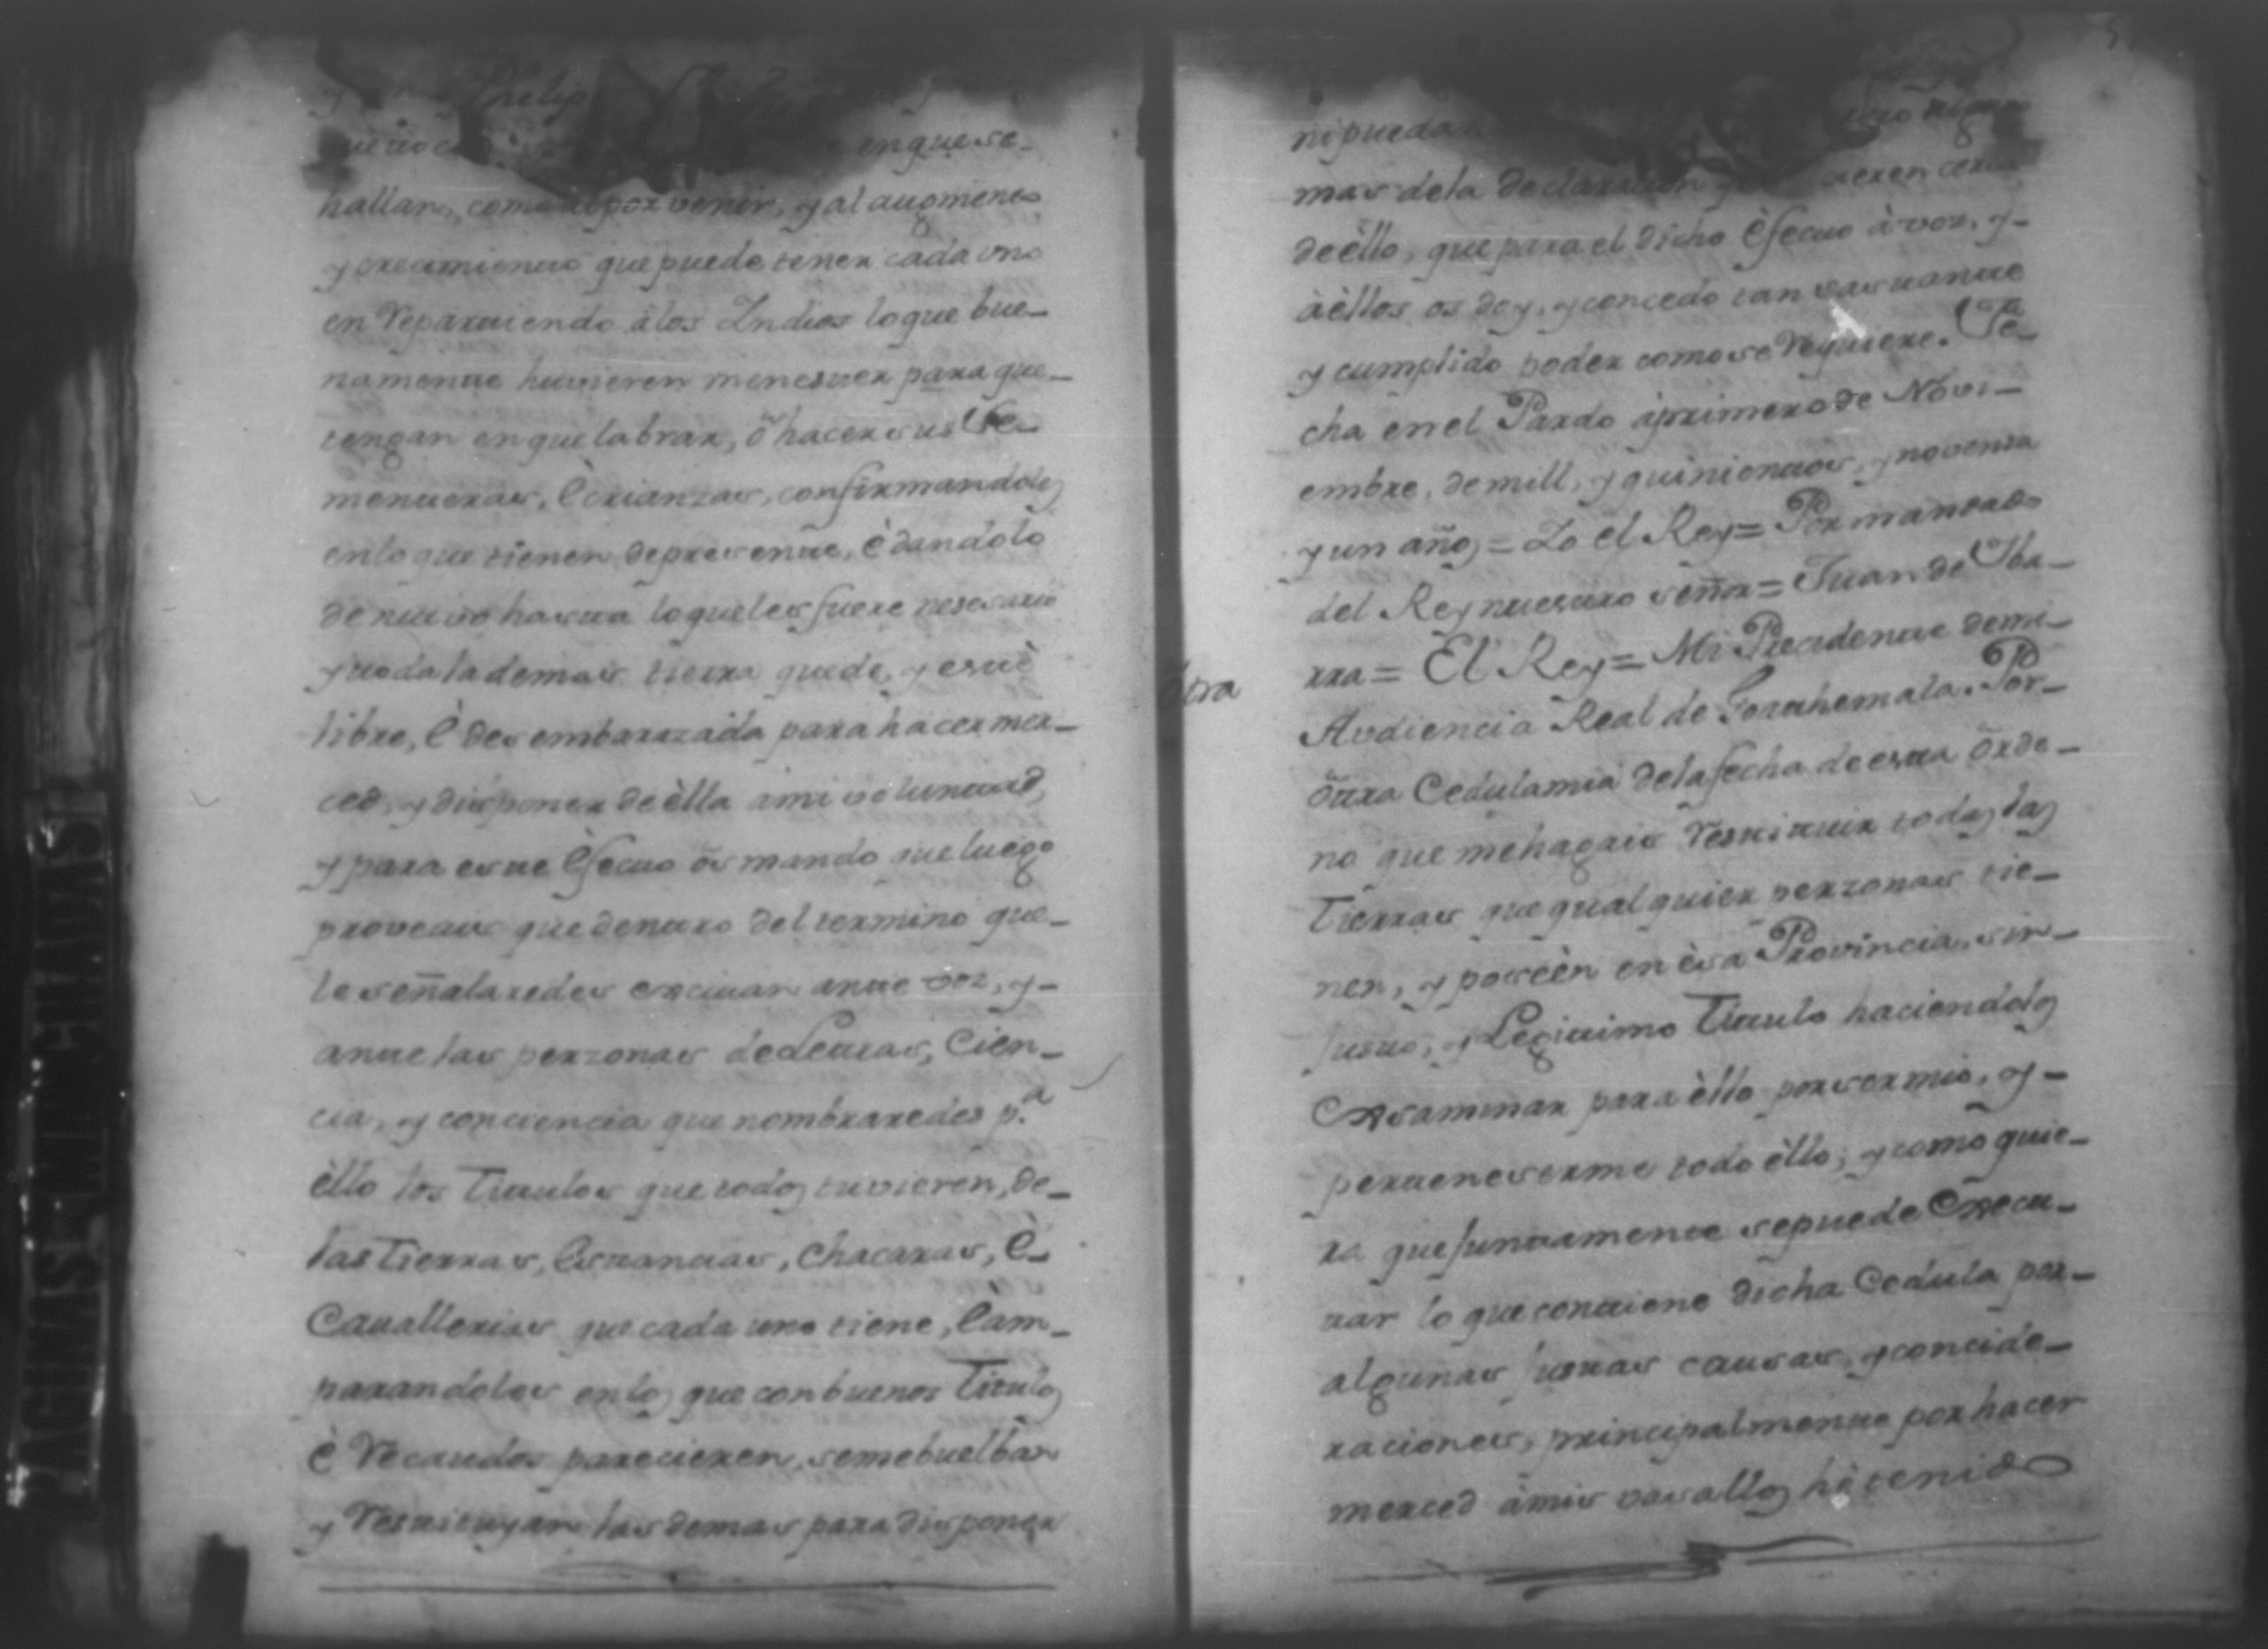 en que se-
hallan, como al por venir, y al augmento
y crecimiento que puede tener cada uno
en repartiendo à los Indios lo que bue-
namente huvieren menester para que-
tengan en que labrar, ò hacer sus Se-
menteras, è crianzas, confirmandoles
en lo que tienen de presente, è dandolo
de nuevo hasta lo que les fuere nesesario
y toda la demas tierra quede, y estè
libre, è desembarazada para hacer mer-
ced, y disponer de èlla a mi voluntad,
y para este èfecto òs mando que luego
proveais que dentro del termino que-
le señalaredes exsivan ante vos, y-
ante las perzonas de Letras, Cien-
cia, y conciencia que nombraredes p.ª
èllo los Titulos que todos tuvieren, de-
las Tierras, Estancias, Chacaras, è-
Cavallerias que cada uno tiene, èam-
parandoles en los que con buenos Titulos
è Recaudos parecieren, se me buelban
y Restituyan las demas para disponer
ni pueda
mas de la declaracion
de èllo, que para el dicho èfecto à vos, y-
à èllos os doy, y concedo tan vastante
y cumplido poder como se Requiere. Fe-
cha en el Pardo à primero de Novi-
embre, de mill, y quinientos, y noventa
y un años = Lo el Rey = Por mandado
del Rey nuestro señor = Juan de Iba-
Otra
rra = El Rey = Mi Precidente de mi-
Audiencia Real de Goathemala. Por-
òtra Cedula mia de la fecha de esta òrde-
no que me hagais Restituir todas las
Tierras que qual quier perzonas tie-
nen, y poseèn en èsa Provincia, sin-
justo, y Legitimo Titulo haciendolos
Exsaminar para èllo por ser mio, y-
perteneserme todo èllo; y como quie-
ra que juntamente se puede Execu-
tar lo que contiene dicha Cedula por-
algunas justas causas, y concide-
raciones, principalmente por hacer
merced à mis vasallos hè tenido